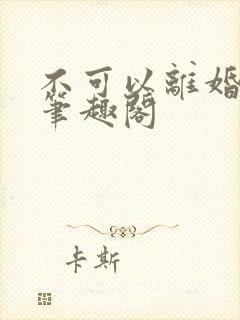 不可以離婚
筆趣閣
卡斯